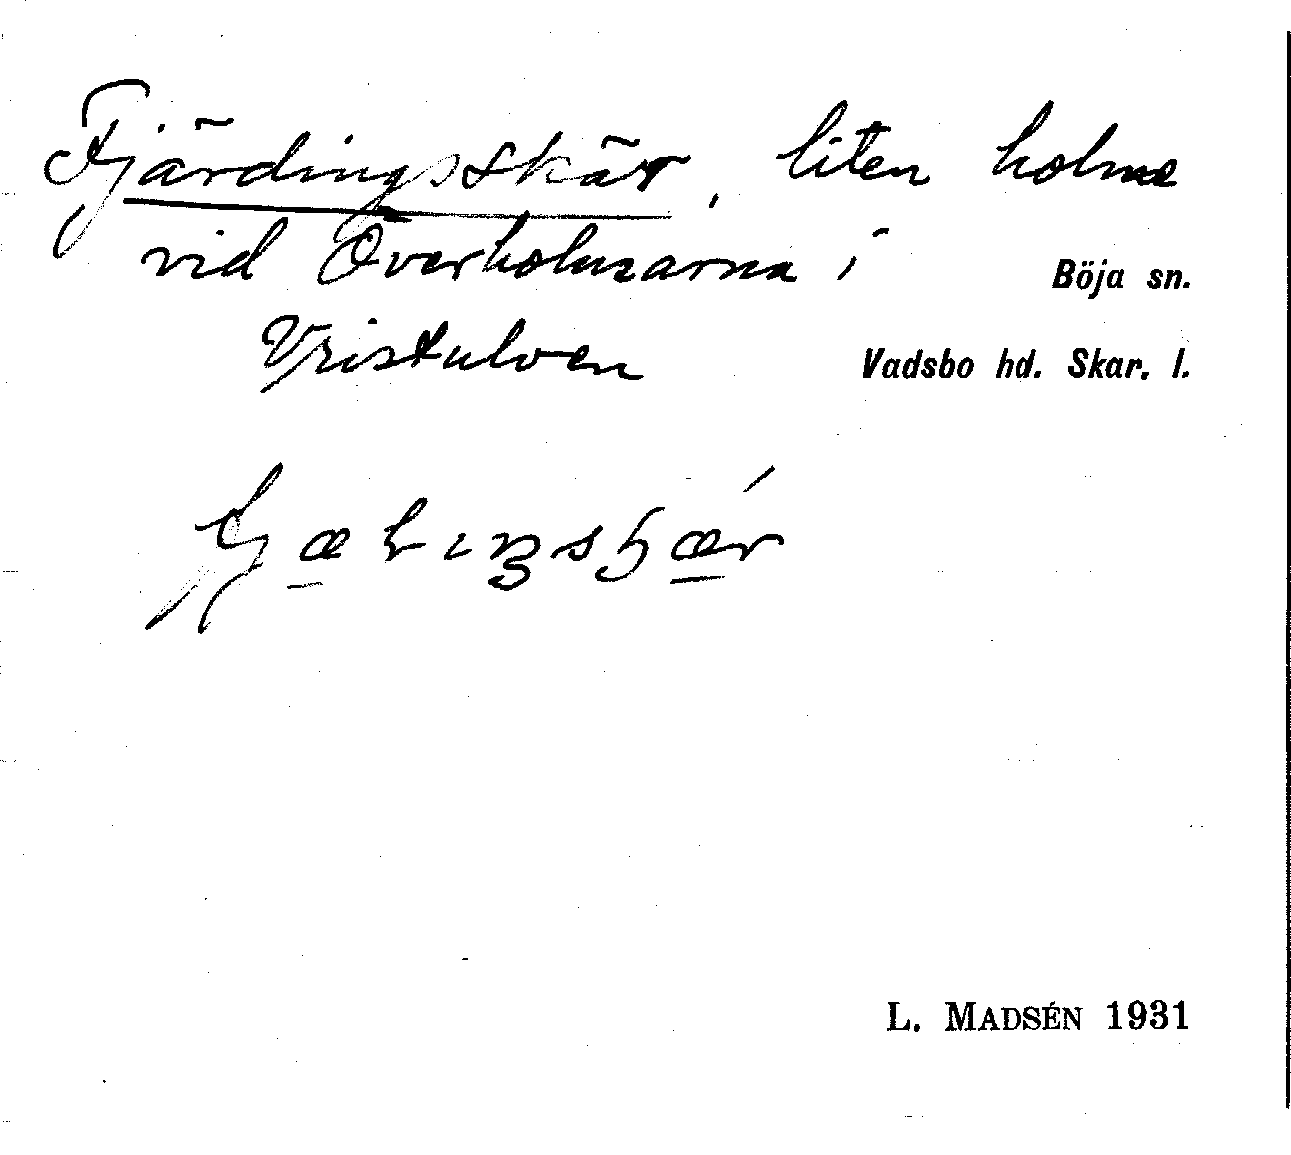 Fjärdingsskär, liten holme
vid Överholmarna i
Böja sn.
Vristulven
Vadsbo hd. Skar. l.
L. MADSÉN 1931